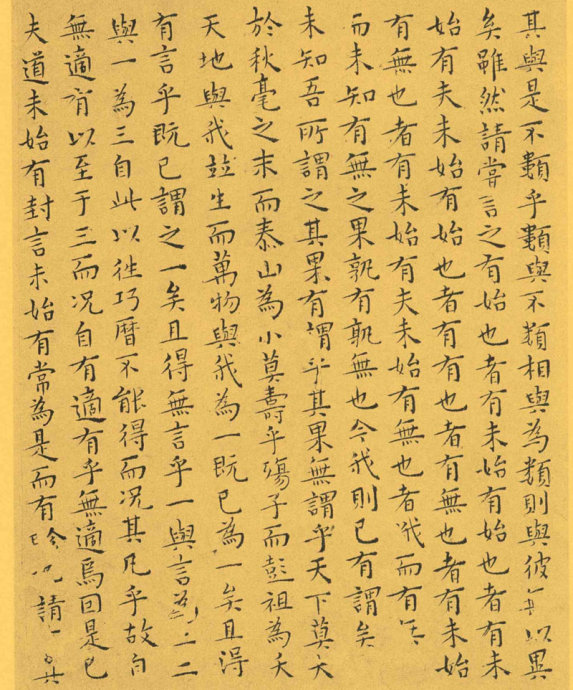 其與是不類乎類與不類相與為類則與彼以異
矣雖然請嘗言之有始也者有未始有始也者有未
始有夫未始有始也者有有也者有無也者有未始
有無也者有未始有夫未始有無也者俄而有
而未知有無之果孰有孰無也今我則已有謂矣
未知吾所謂之其果有謂乎其果無謂乎天下莫大
於秋毫之末而泰山為小莫壽乎殤子而彭祖為夭
天地與我竝生而萬物與我為一既已為一矣且得
有言乎既已謂之一矣且得無言乎一與言為二二
與一為三自此以往巧曆不能得而況其凡乎故自
無適有以至于三而況自有適有乎無適焉因是已
夫道未始有封言未始有常為是而有畛也請其